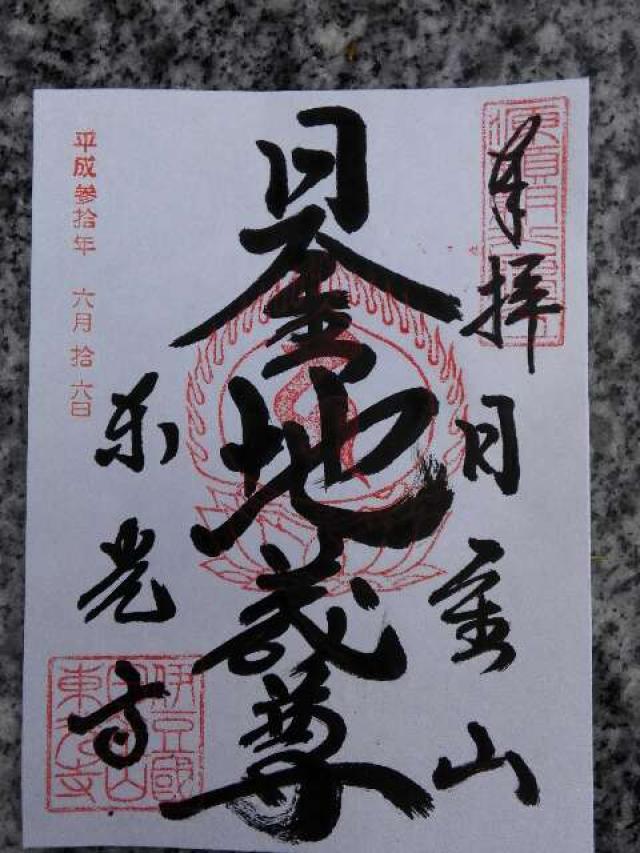 奉拝
日金山
日金地蔵尊
平成参拾年 六月拾六日
東光寺
伊豆國
日金山
東光寺